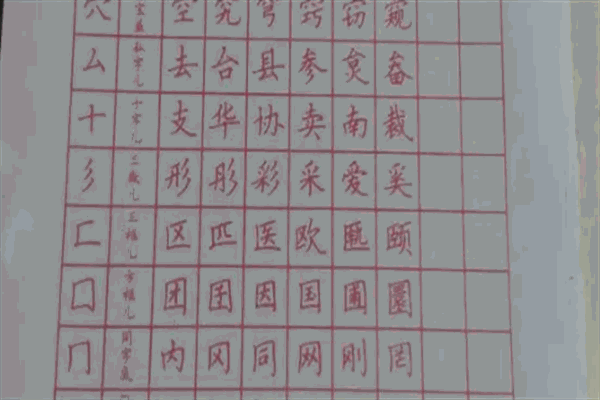 穴 宝盖 空 究 穹 窍 窃 窥
厶 私字儿 去 台 县 参 炱 畚
十 十字儿 支 华 协 卖 南 裁
彡 三撇儿 形 彤 彩 采 爱 奚
匚 三框儿 区 匹 医 欧 匭 颐
囗 方框儿 团 囯 因 国 圃 圜
冂 同字框 内 冈 同 网 刚 罔